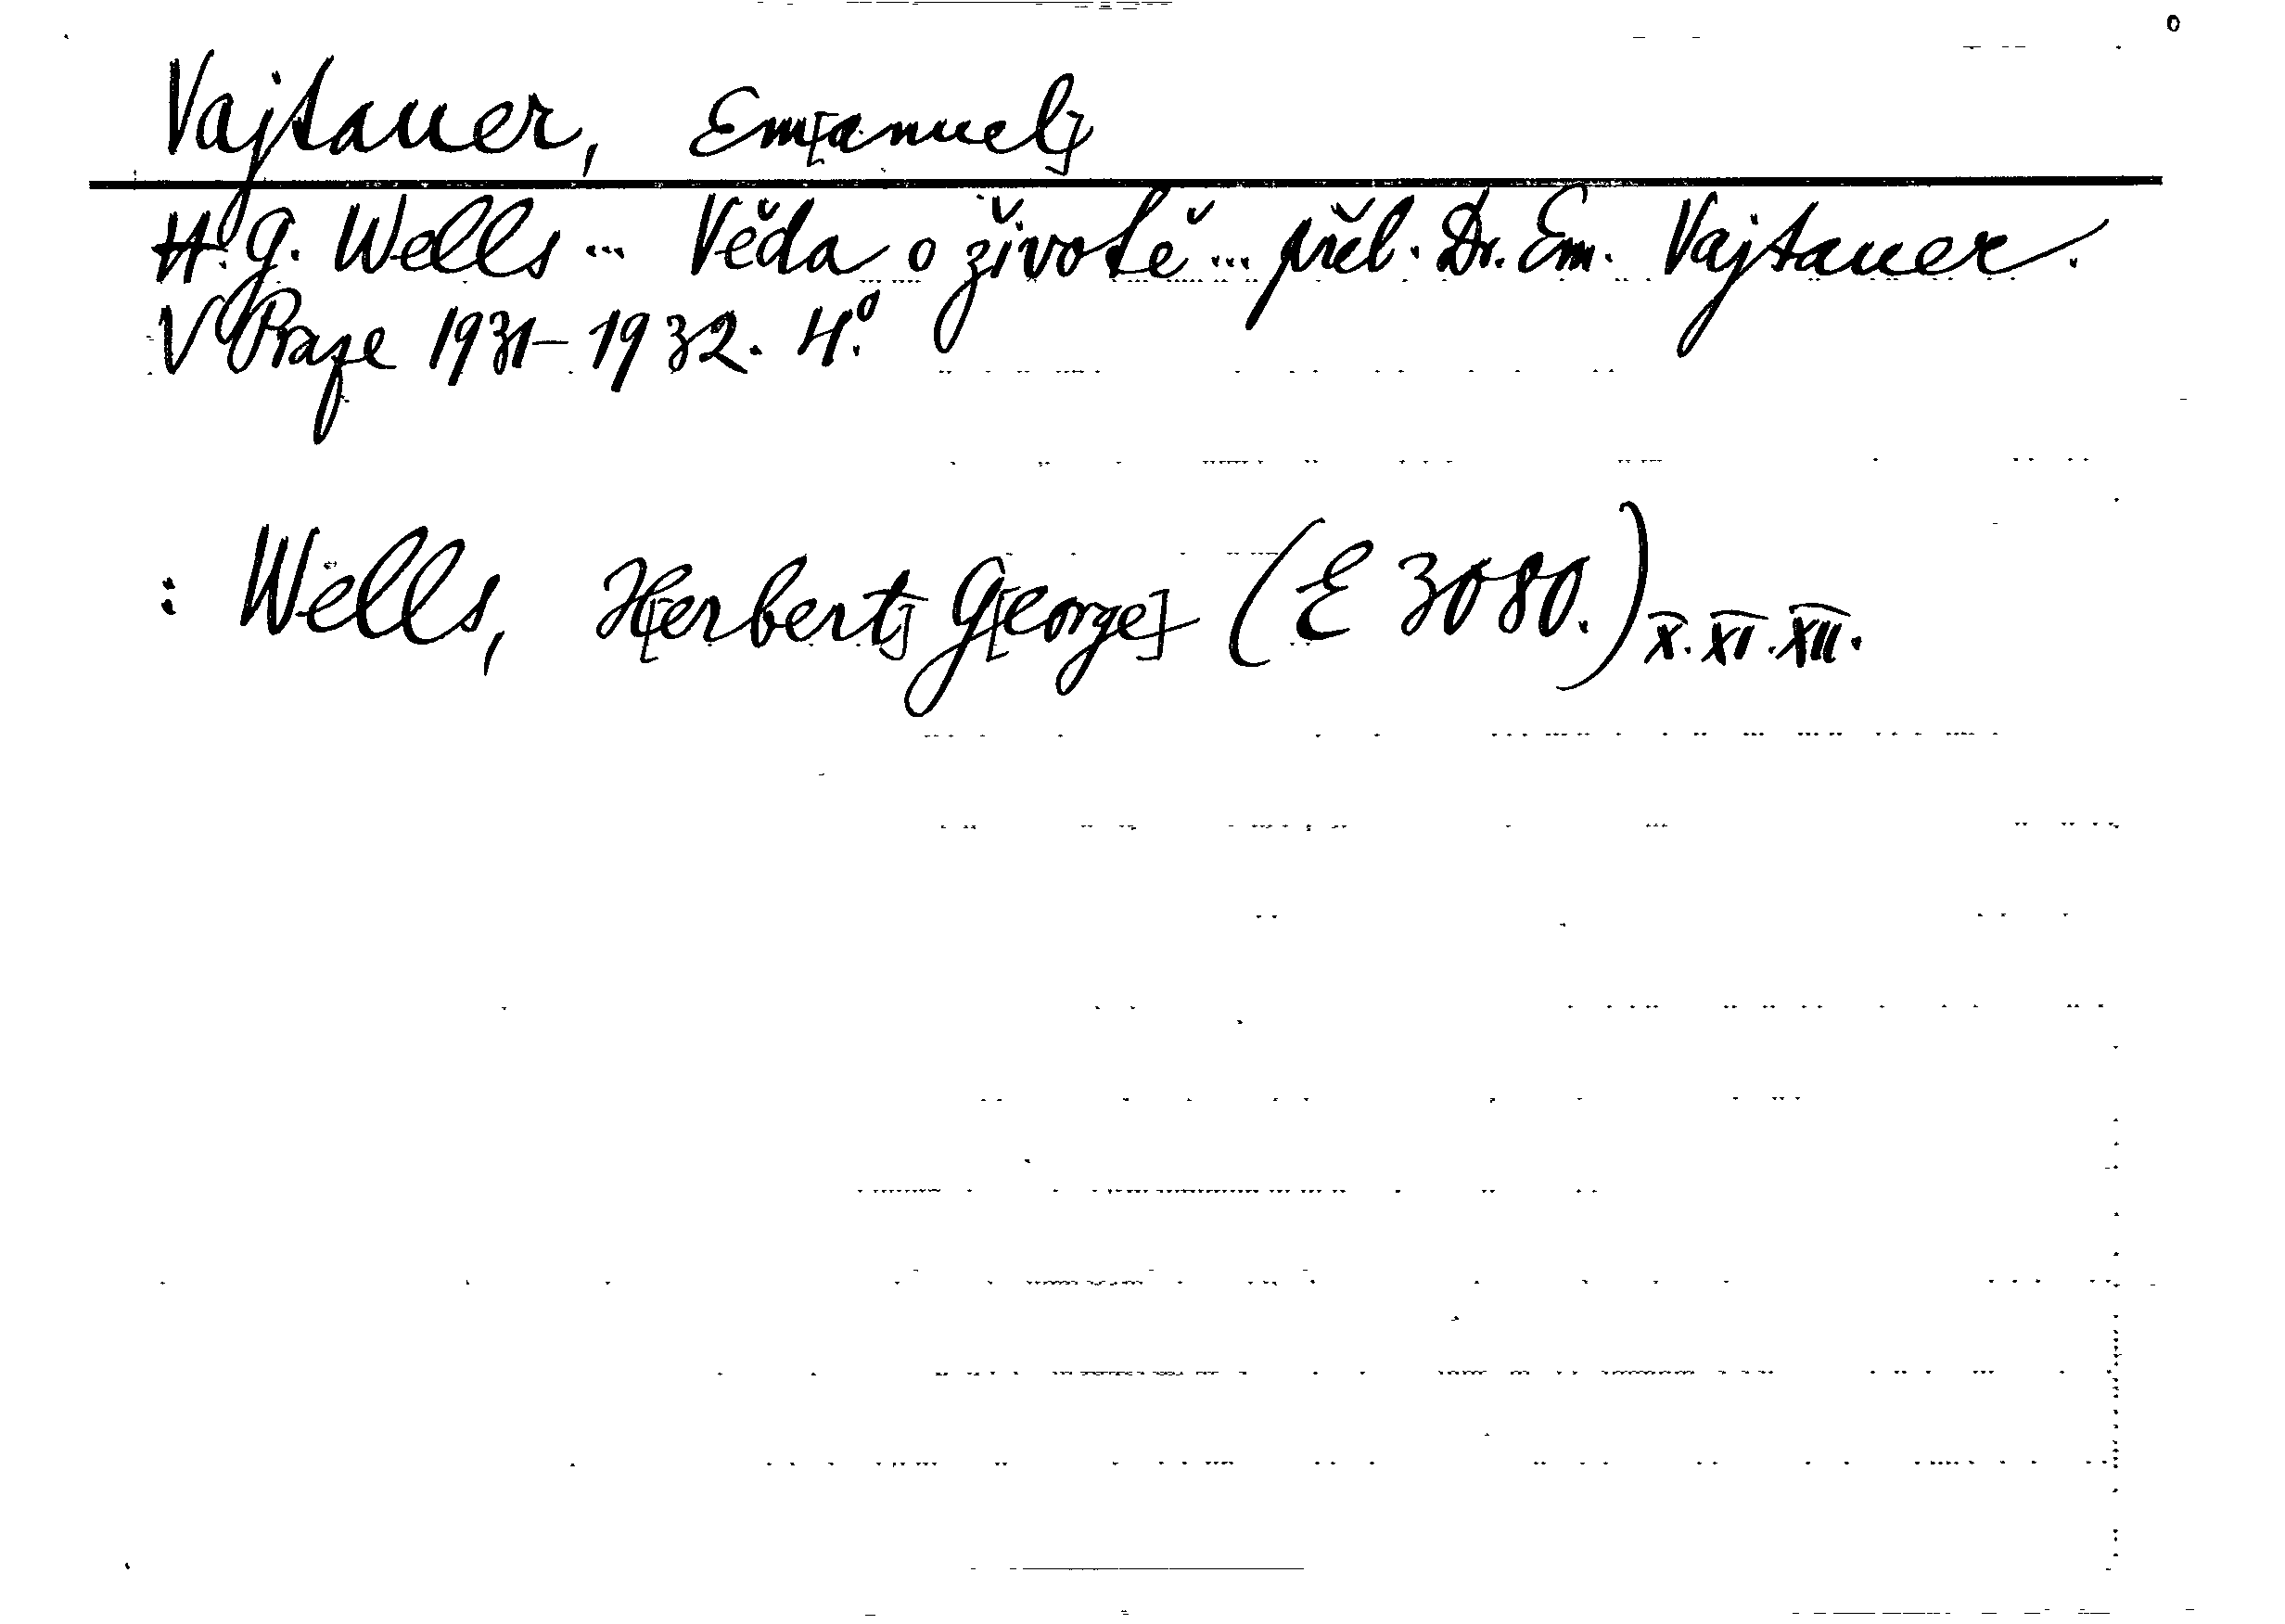 Vajtauer, Em[anuel]
H. G. Wells ... Věda o životě ... přel. Dr. Em. Vajtauer.
V Praze 1931-1932. 4.°
: Wells, H[erbert] G[eorge] (E 3080.) X. XI. XII.